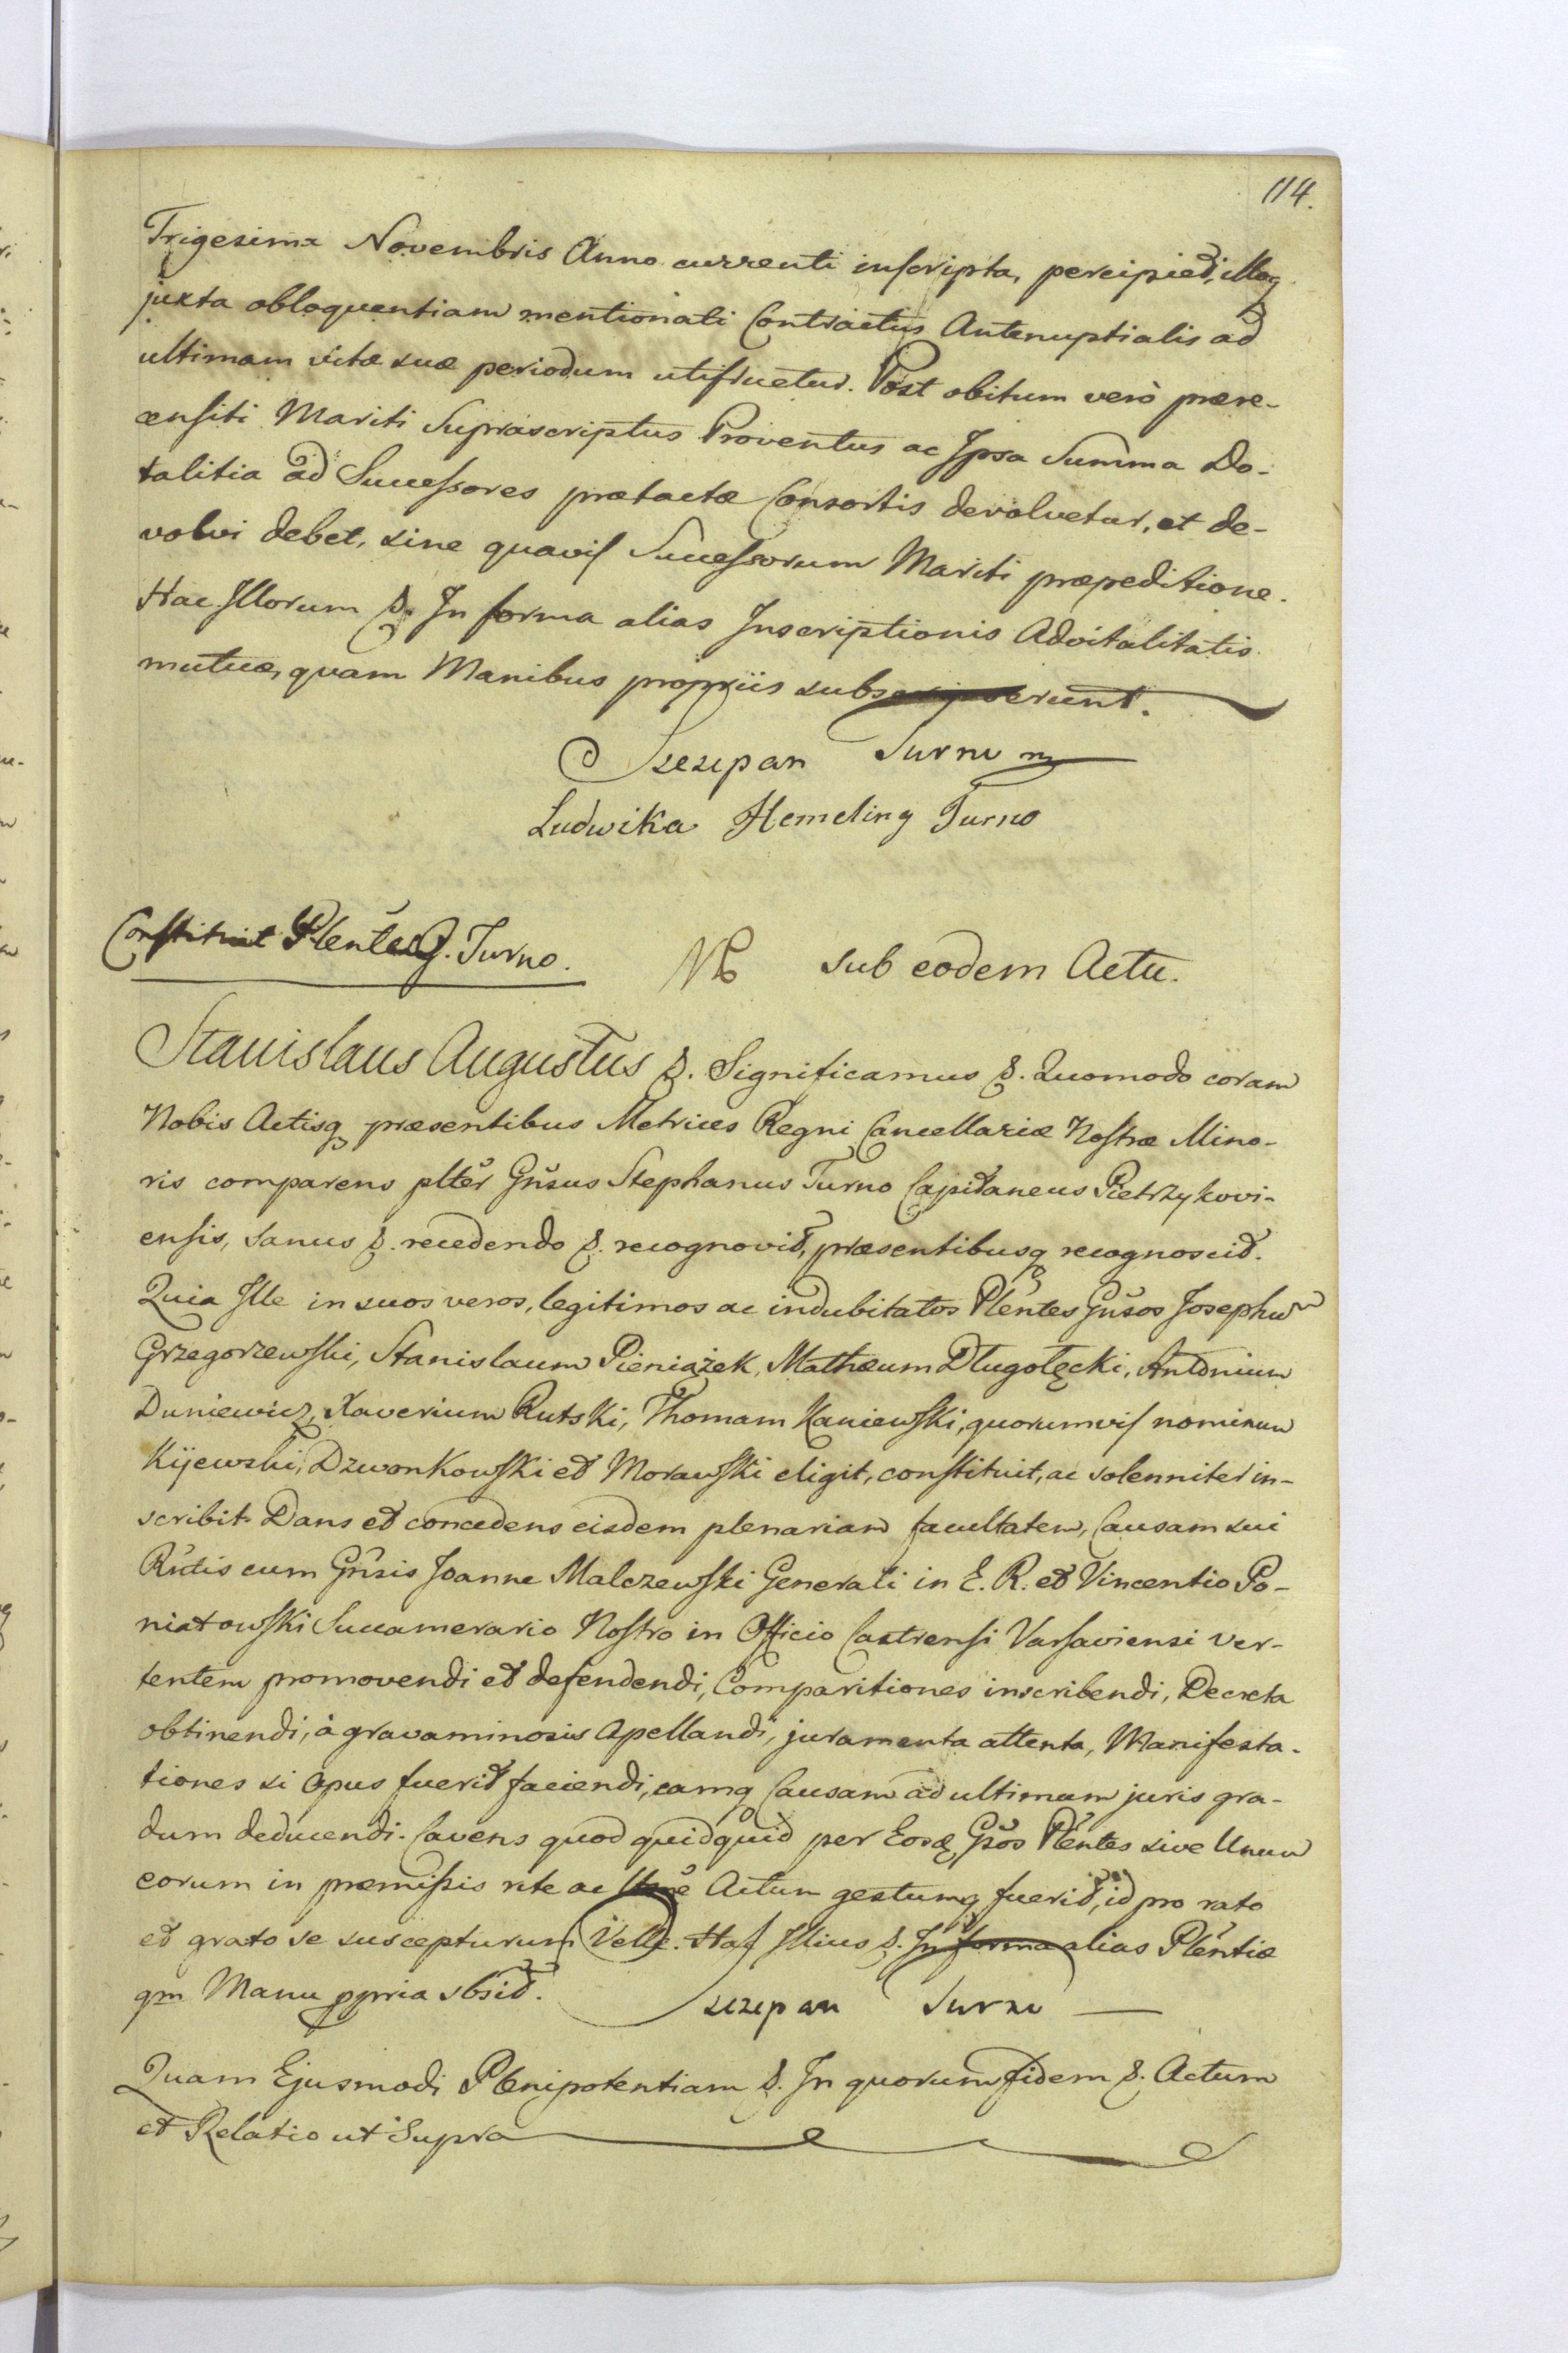 114.
Trigesima Novembris Anno currenti inscripta, percipiet, illoq
juxta obloquentiam mentionati Contractus Antenuptialis ad
ultimam vitæ suæ periodum utifruetur. Post obitum verò prære-
censiti Mariti Suprascriptus Proventus ac Ipsa Summa Do-
talitia ad Successores prætactæ Consortis devolvetur, et de-
volvi debet, sine quavis Successorum Mariti præpeditione.
Hac Illorum &. In forma alias Inscriptionis Advitalitatis
mutuæ, quam Manibus propriis subscripserunt.
Szczepan Turno
Ludwika Hemeling Turno
Constituit Plentes G. Turno.
sub eodem Actu.
Stanislaus Augustus &. Significamus &. Quomodo coram
Nobis Actisq præsentibus Metrices Regni Cancellariæ Nostræ Mino-
ris comparens plter Gnsus Stephanus Turno Capitaneus Pietrzykovi-
ensis, sanus &. recedendo &. recognovit, præsentibusq recognoscit.
Quia Ille in suos veros, legitimos ac indubitatos Plentes Gnsos Josephum
Grzegorzewski, Stanislaum Pieniążek, Mathæum Długołęcki, Antonium
Duniewicz, Xaverium Rutski, Thomam Kaniewski, quorumvis nominum
Kijewski, Dzwonkowski et Morawski eligit, constituit, ac solenniter in-
scribit. Dans et concedens eisdem plenariam facultatem, Causam sui
Rntis cum Gnsis Joanne Malczewski Generali in E. R. et Vincentio Po-
niatowski Succamerario Nostro in Officio Castrensi Varsaviensi ver-
tentem promovendi et defendendi, Comparitiones inscribendi, Decreta
obtinendi, à gravaminosis Apellandi, juramenta attenta, Manifesta-
tiones si Opus fuerit faciendi, eamq Causam ad ultimum juris gra-
dum deducendi. Cavens quod quidquid per Eosd Gsos Plentes sive Unum
eorum in præmissis rite ac Actum gestumq fuerit, id pro rato
et grato se suscepturum Velle. Hac Illius &. In forma alias Plentiæ
qm Manu ppria sbsit.
Szczepan Turno
Quam Ejusmodi Plenipotentiam &. In quorum fidem &. Actum
et Relatio ut Supra